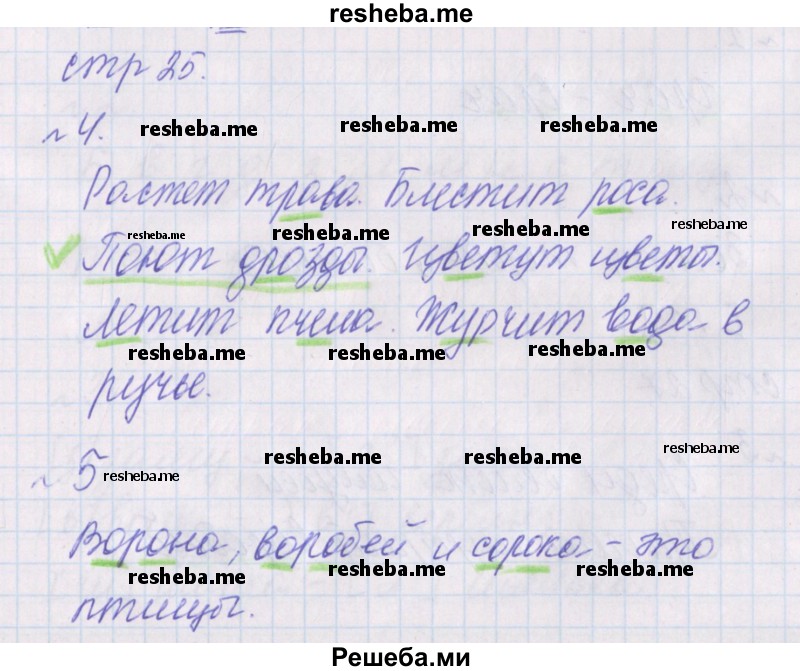 resheba.me
стр 25.
№ 4.
resheba.me resheba.me resheba.me
Растет трава. Блестит роса.
resheba.me resheba.me resheba.me resheba.me
Поют дрозды. Цветут цветы.
Летит пчела. Журчит вода в
resheba.me resheba.me resheba.me
ручье.
resheba.me resheba.me resheba.me
№ 5 resheba.me
Ворона, воробей и сорока - это
resheba.me resheba.me resheba.me
птицы.
Решеба.ми